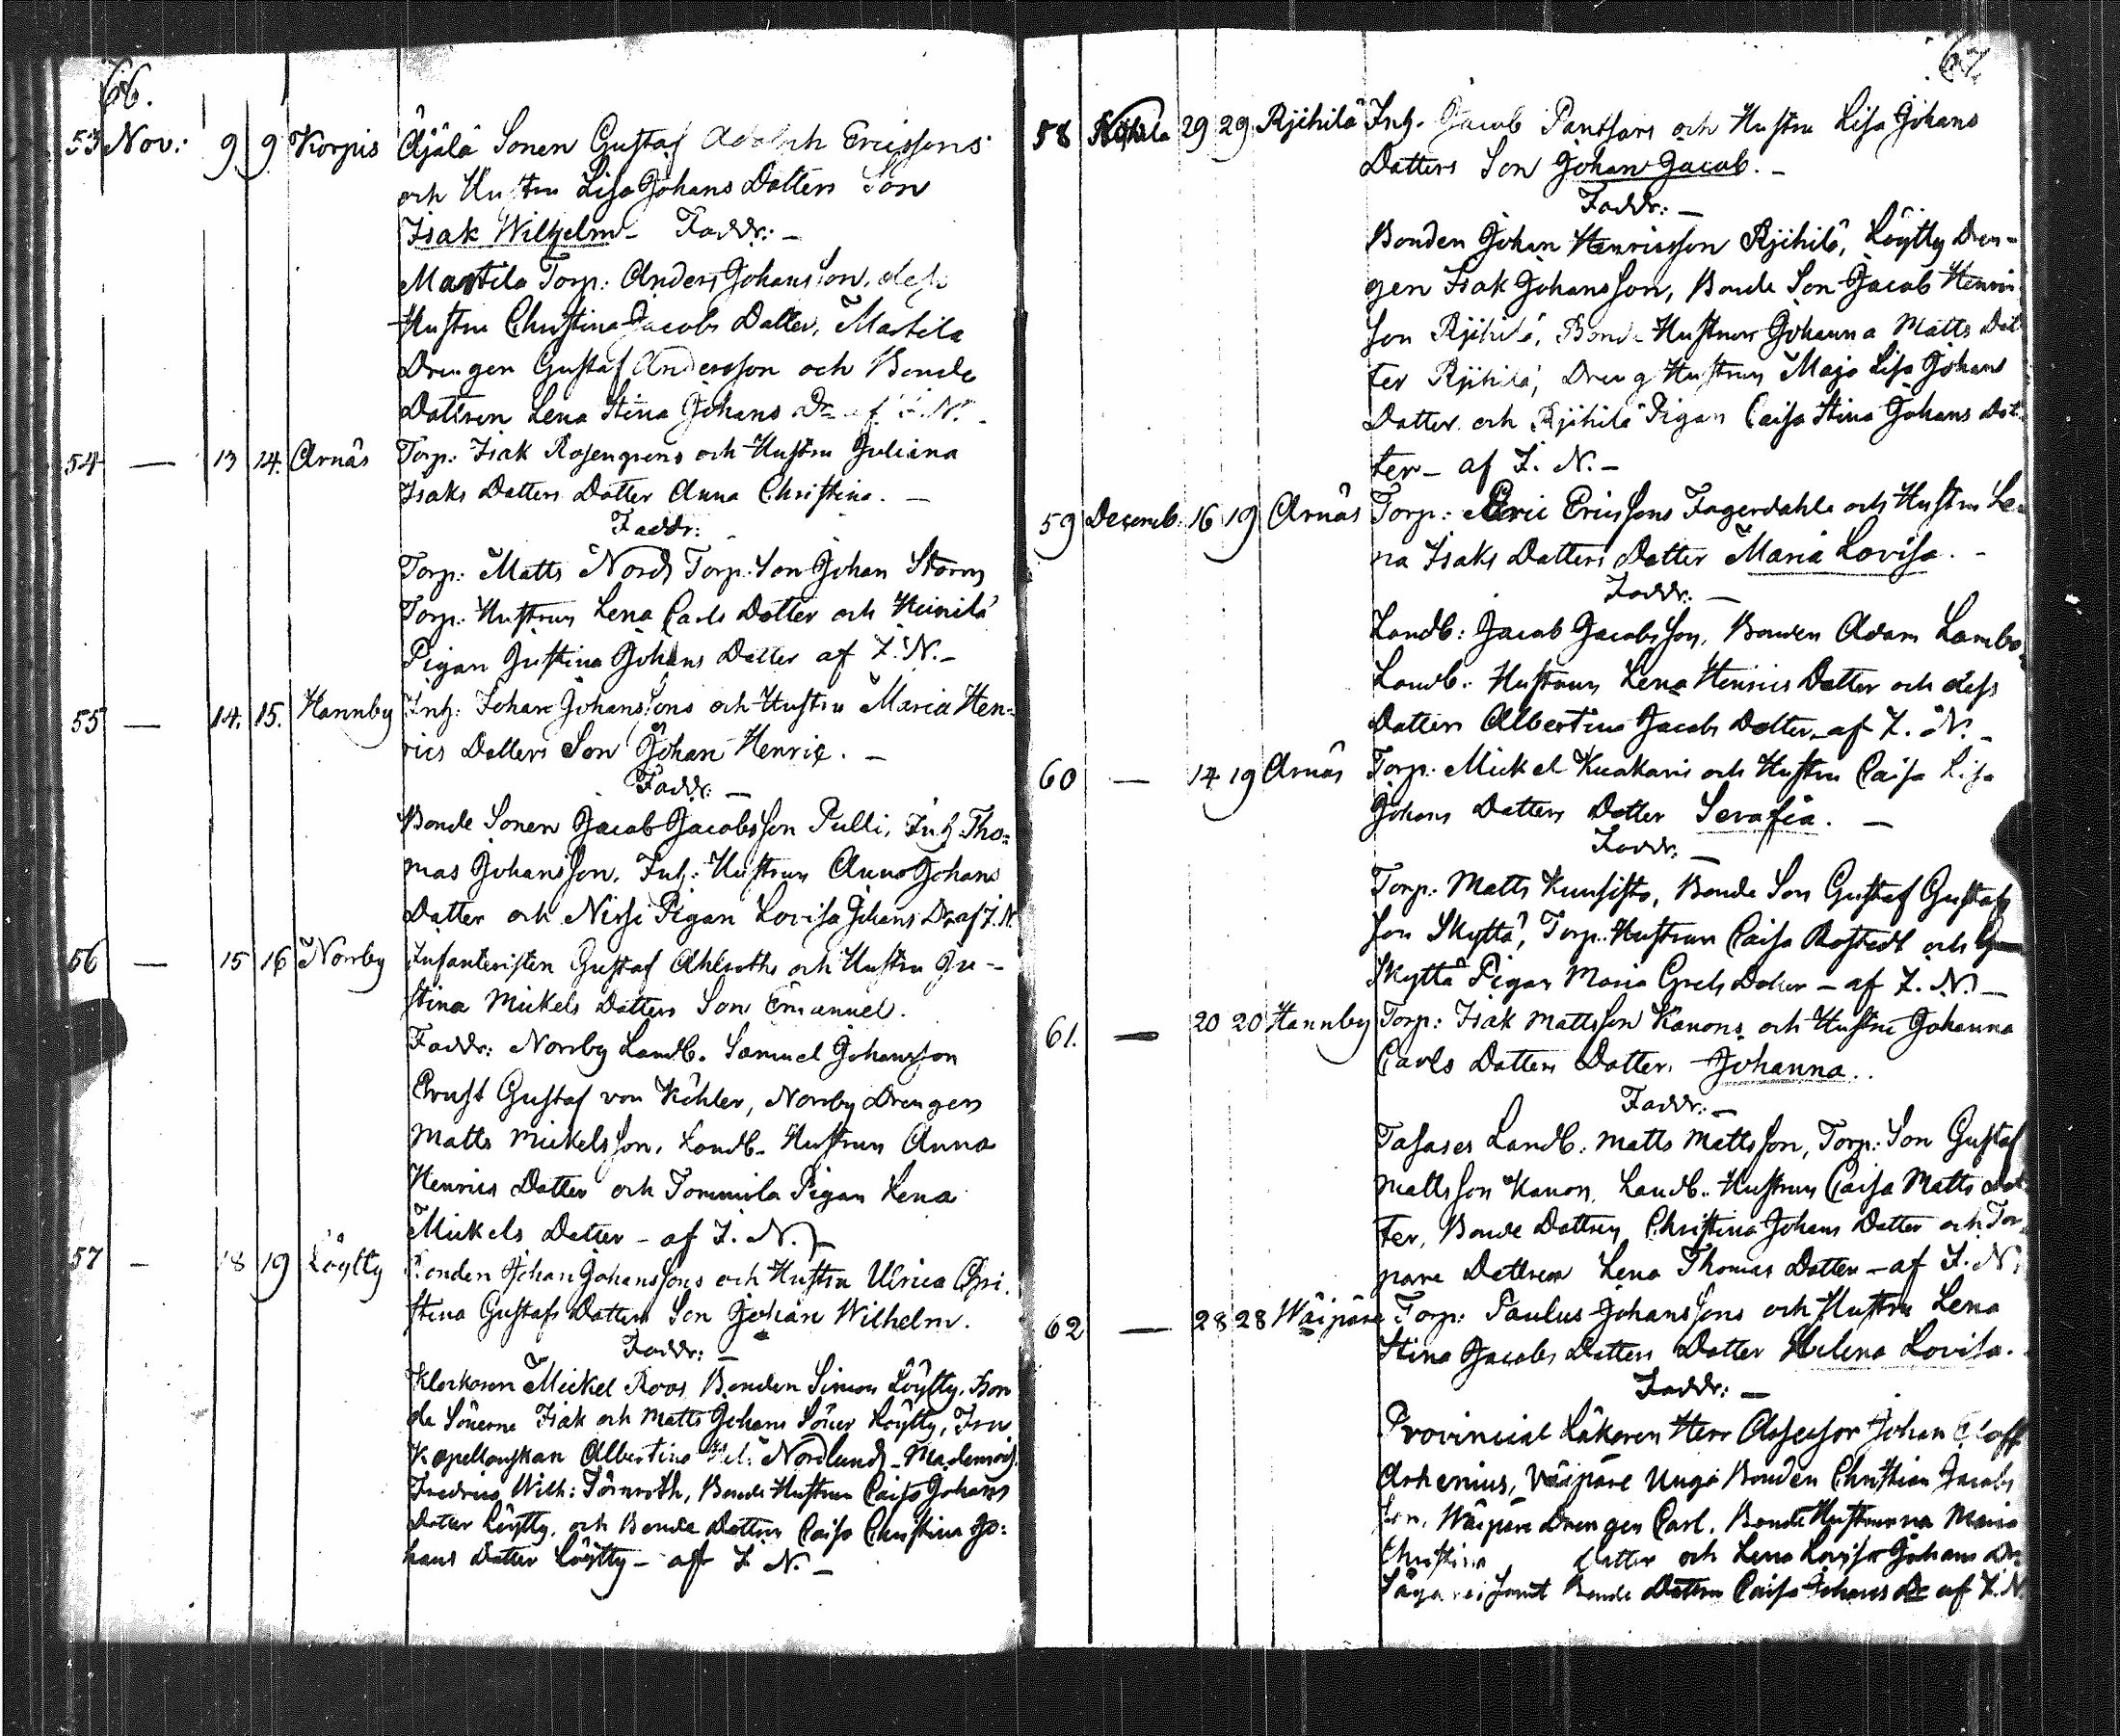 66.
53 Nov: 9 9 Korpis Äjälä Sonen Gustaf Adolph Ericssons
och Hustru Lisa Johans Dotters Son
Isak Wilhelm - Faddr: -
Martila Torp: Anders Johansson, dess
Hustru Christina Jacobs Dotter, Martila
Drengen Gustaf Andersson och Bonde
Dottren Lena Stina Johans Dr af I. N. -
54 — 13 14. Arnäs Torp: Isak Rosengrens och Hustru Juliana
Isaks Dotters Dotter Anna Christina. —
Faddr:
Torp: Matts Nord, Torp. Son Johan Storm
Torp: Hustrun Lena Carls Dotter och Heinilä
Pigan Justina Johans Dotter af I. N. -
55 — 14. 15. Hannby Inh: Johan Johanssons och Hustru Maria Hen=
rics Dotters Son Johan Henric. —
Faddr: —
Bonde Sonen Jacob Jacobsson Pulli, Inh Tho=
mas Johansson, Inh: Hustrun Anna Johans
Dotter och Nissi Pigan Lovisa Johans Dr af I. N.
56 — 15 16 Norrby Infanteristen Gustaf Ahlroths och Hustru Ju-
stina Mickels Dotters Son Emanuel.
Faddr: Norrby Landb. Samuel Johansson
Ernst Gustaf von Köhler, Norrby Drengen
Matts Mickelsson, Landb. Hustrun Anna
Henrics Dotter och Tommila Pigan Lena
Mickels Dotter - af I. N. -
57 — 18 19 Löylty Bonden Johan Johanssons och Hustru Ulrica Chri.
stina Gustafs Dotters Son Johan Wilhelm.
Faddr: —
Klockaren Mickel Roos, Bonden Simon Löylty, Bon
de Sönerne Isak och Matts Johans Söner Löylty, Fru
Kapellanskan Albertina Nordlund, Mademois.
Fredrica Wilh: Törnroth, Bonde Hustrun Caisa Johans
Dotter Löylty, och Bonde Dottren Caisa Christina Jo:
hans Dotter Löylty - af I. N. -
67.
58 29 29 Rjihilä Inh. Jacob Pantsars och Hustru Lisa Johans
Dotters Son Johan Jacob. -
Faddr: —
Bonden Johan Henricsson Rjihilä, Löylty Dren-
gen Isak Johansson, Bonde Son Jacob Henric
son Rjihilä, Bonde Hustrun Johanna Matts Dot
ter Rjihilä, Dreng Hustrun Maja Lisa Johans
Dotter och Rjihilä Pigan Caisa Stina Johans Dot
ter - af I. N. -
59 Decemb: 16 19 Arnäs Torp: Eric Ericssons Fagerdahls och Hustru Le
na Isaks Dotters Dotter Maria Lovisa. -
Faddr: —
Landb: Jacob Jacobsson, Bonden Adam Lambo
Landb: Hustrun Lena Henrics Dotter och dess
Dotter Albertina Jacobs Dotter - af I. N. -
60 — 14 19 Arnäs Torp: Mickel Kuakaris och Hustru Caisa Lisa
Johans Dotters Dotter Serafia. —
Faddr: —
Torp: Matts Kunsisto, Bonde Son Gustaf Gustafs
son Skyttä, Torp. Hustrun Caisa Rostedt och
Skyttä Pigan Maria Grels Dotter - af I. N. -
61. — 20 20 Hannby Torp: Isak Mattsson Kanons och Hustru Johanna
Carls Dotters Dotter Johanna.
Faddr: —
Tasases Landb: Matts Mattsson, Torp: Son Gustaf
Mattsson Kanon, Landb. Hustrun Caisa Matts Dot
ter, Bonde Dottren Christina Johans Dotter och Tor
pare Dottren Lena Thomas Dotter - af I. N.
62 — 28 28 Wäipäre Torp: Paulus Johanssons och Hustru Lena
Stina Jacobs Dotters Dotter Helena Lovisa.
Faddr: —
Provincial Läkaren Herr Assessor Johan Eloff
Arhenius, Väipäre Unga Bonden Christian Jacobs
son, Wäipäre Drengen Carl, Bonde Hustrurna Maria
Christina Dotter och Lena Lovisa Johans Dr
samt Bonde Dottren Caisa Johans Dr af I. N.